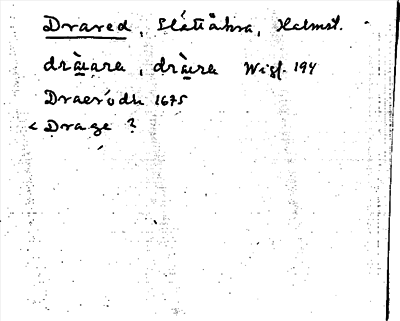 Drared, Slättåkra, Halmst.
dràɯara, dràɯra Wigf. 194
Draerödh 1675
< Drage ?